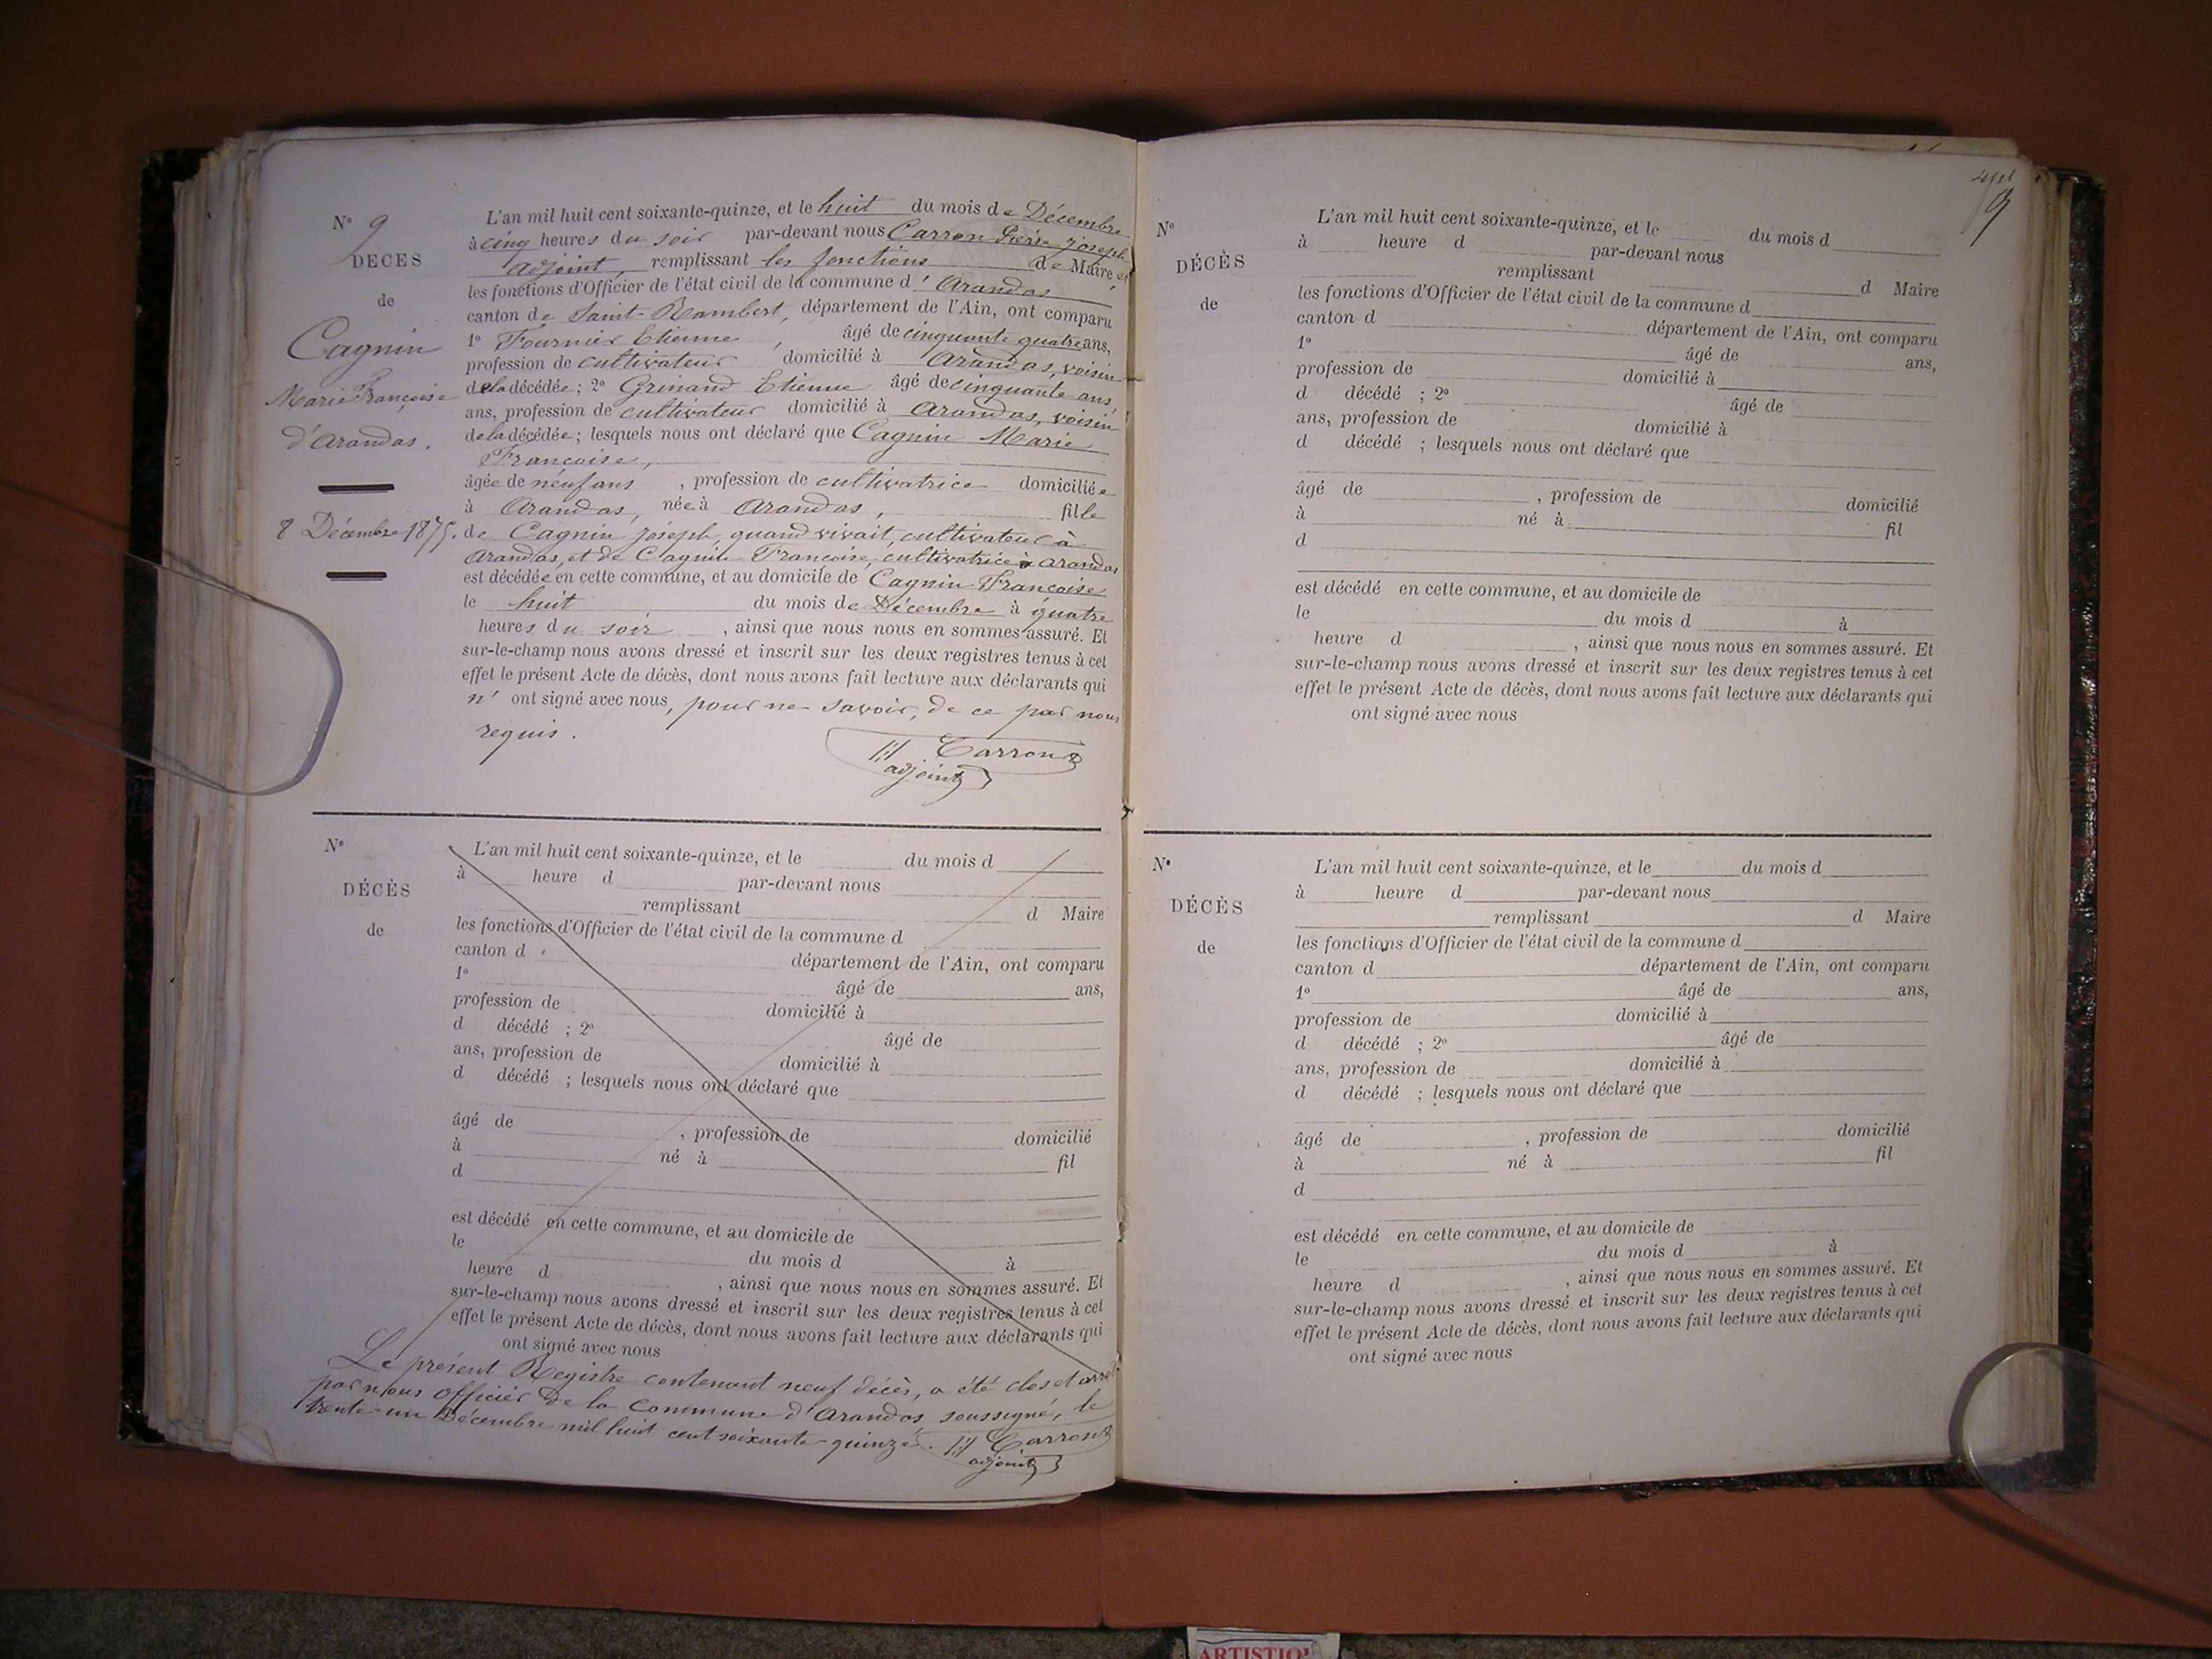 N° 9
DÉCÈS
de
Cagnin
Marie Françoise
d'Arandas.
8 Décembre 1875.
L'an mil huit cent soixante-quinze, et le huit du mois de Décembre
à cinq heures du soir par-devant nous Carron Pierre joseph
adjoint, remplissant les fonctions de Maire et
les fonctions d'Officier de l'état civil de la commune d'Arandas
canton de Saint-Rambert, département de l'Ain, ont comparu
1° Fournier Etienne, âgé de cinquante quatre ans,
profession de cultivateur domicilié à Arandas, voisin
de la décédée ; 2° Grinand Etienne âgé de cinquante ans
ans, profession de cultivateur domicilié à Arandas, voisin
de la décédée ; lesquels nous ont déclaré que Cagnin Marie
Françoise,
âgée de neuf ans , profession de cultivatrice domiciliée
à Arandas, née à Arandas, fille
de Cagnin joseph, quand vivait, cultivateur à
Arandas, et de Cagnin Françoise, cultivatrice à Arandas
est décédée en cette commune, et au domicile de Cagnin Françoise
le huit du mois de Décembre à quatre
heures du soir , ainsi que nous nous en sommes assuré. Et
sur-le-champ nous avons dressé et inscrit sur les deux registres tenus à cet
effet le présent Acte de décès, dont nous avons fait lecture aux déclarants qui
n' ont signé avec nous, pour ne savoir, de ce par nous
requis.
Carron
adjoint
N°
DÉCÈS
de
L'an mil huit cent soixante-quinze, et le du mois d
à heure d par-devant nous
remplissant d Maire
les fonctions d'Officier de l'état civil de la commune d
canton d département de l'Ain, ont comparu
1° âgé de ans,
profession de domicilié à
d décédé ; 2° âgé de
ans, profession de domicilié à
d décédé ; lesquels nous ont déclaré que
âgé de , profession de domicilié
à né à fil
d
est décédé en cette commune, et au domicile de
le du mois d à
heure d , ainsi que nous nous en sommes assuré. Et
sur-le-champ nous avons dressé et inscrit sur les deux registres tenus à cet
effet le présent Acte de décès, dont nous avons fait lecture aux déclarants qui
ont signé avec nous
Le présent Registre contenant neuf décès, a été clos et arrêté
par nous officier de la Commune d'Arandas soussigné, le
trente-un Décembre mil huit cent soixante-quinze.
Carron
adjoint
N°
DÉCÈS
de
L'an mil huit cent soixante-quinze, et le du mois d
à heure d par-devant nous
remplissant d Maire
les fonctions d'Officier de l'état civil de la commune d
canton d département de l'Ain, ont comparu
1° âgé de ans,
profession de domicilié à
d décédé ; 2° âgé de
ans, profession de domicilié à
d décédé ; lesquels nous ont déclaré que
âgé de , profession de domicilié
à né à fil
d
est décédé en cette commune, et au domicile de
le du mois d à
heure d , ainsi que nous nous en sommes assuré. Et
sur-le-champ nous avons dressé et inscrit sur les deux registres tenus à cet
effet le présent Acte de décès, dont nous avons fait lecture aux déclarants qui
ont signé avec nous
N°
DÉCÈS
de
L'an mil huit cent soixante-quinze, et le du mois d
à heure d par-devant nous
remplissant d Maire
les fonctions d'Officier de l'état civil de la commune d
canton d département de l'Ain, ont comparu
1° âgé de ans,
profession de domicilié à
d décédé ; 2° âgé de
ans, profession de domicilié à
d décédé ; lesquels nous ont déclaré que
âgé de , profession de domicilié
à né à fil
d
est décédé en cette commune, et au domicile de
le du mois d à
heure d , ainsi que nous nous en sommes assuré. Et
sur-le-champ nous avons dressé et inscrit sur les deux registres tenus à cet
effet le présent Acte de décès, dont nous avons fait lecture aux déclarants qui
ont signé avec nous